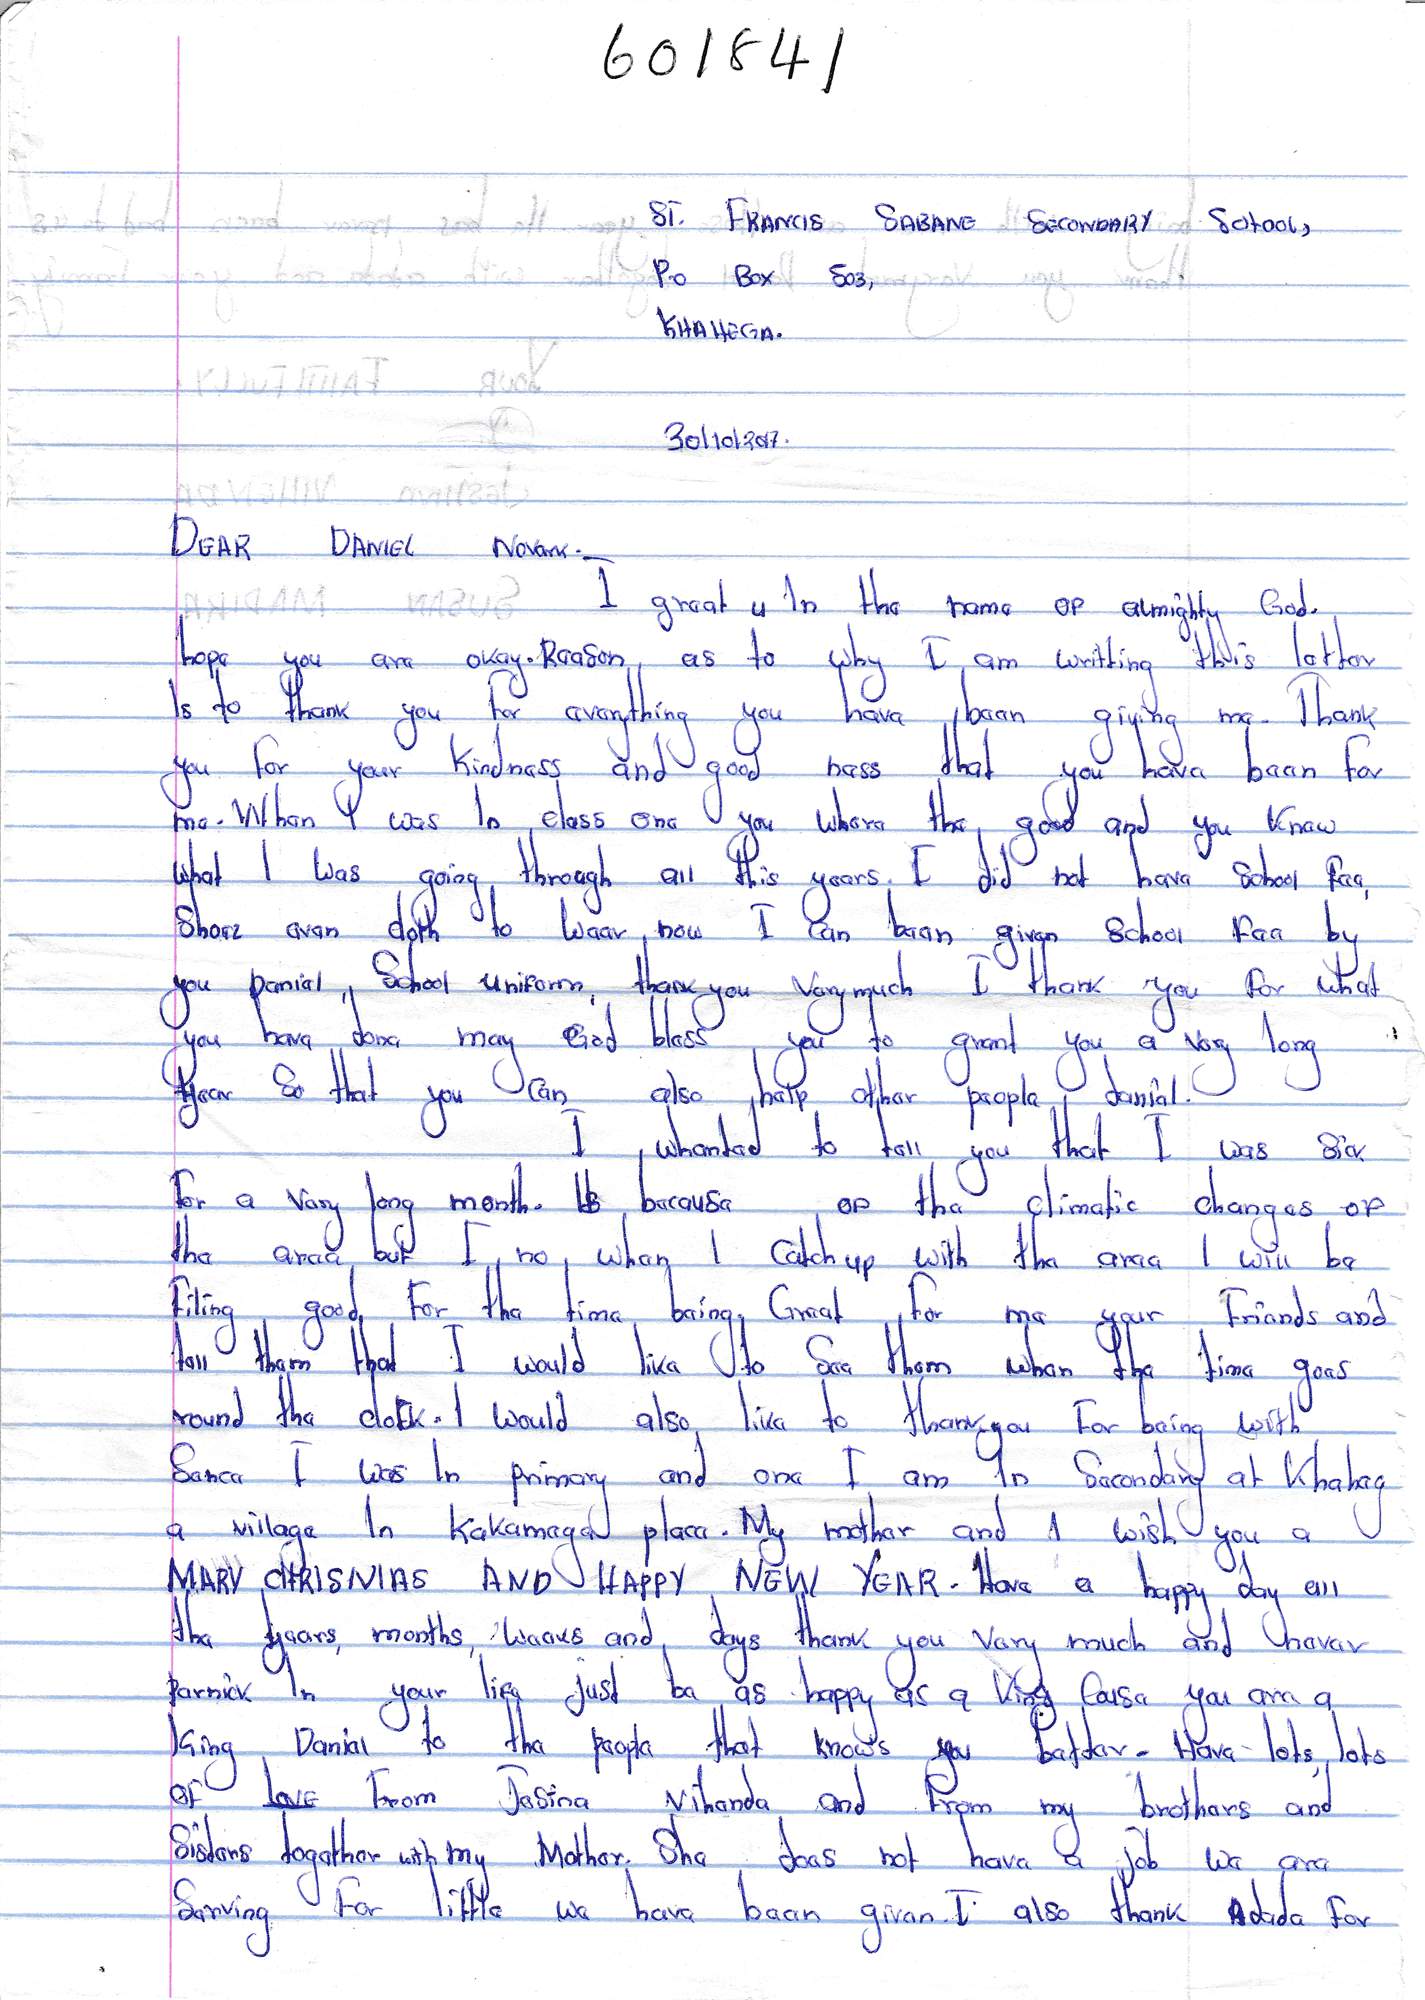 601841
ST. FRANCIS SABANE SECONDARY SCHOOL,
P.o BOX 503,
KHAHEGA.
30/10/2017.
DEAR DANIEL Novark.
I great u In the name of almighty God.
hope you are okay. Reason as to why I am writting this letter
Is to thank you for everything you have been giving me. Thank
you for your kindness and good ness that you have been for
me. When I was In class one you where the good and you know
what I was going through all this years. I did not have School fee,
Shoez even cloth to wear now I can been given School Fee by
you Danial, School uniform, thank you Verymuch I thank you for what
you have done may God bless you to grant you a very long
year So that you can also help other people, danial.
I whanted to tell you that I was Sick
For a Very long month. because of the climatic changes of
the area but I no when I Catch up with the area I will be
Filing good For the time being. Great for me your Friends and
tell them that I would like to See them when the time goes
round the clock. I would also like to thank you For being with
Sence I was In primary and one I am In Secondary at Khaheg
a village In Kakamega place. My mother and I wish you a
MARY CHRISMAS AND HAPPY NEW YEAR. Have a happy day all
the years, months, weeks and days thank you Very much and never
parnick In your life just be as happy as a King Cause you are a
King Danial to the people that knows you batdar. Have lots, lots
OF LOVE From Jesina Vihenda and From my brothers and
Sisters together with my Mother. She does not have a job we are
Serving For little we have been given. I also thank Adede For